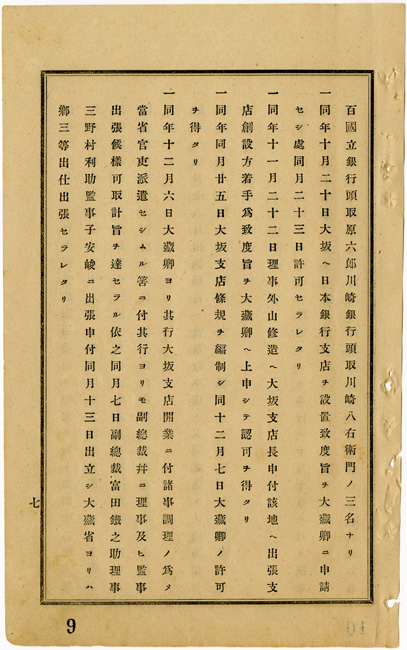 百國立銀行頭取原六郎川崎銀行頭取川崎八右衛門ノ三名ナリ
一同年十月二十日大坂ヘ日本銀行支店ヲ設置致度旨ヲ大藏卿ニ申請
セシ處同月二十三日許可セラレタリ
一同年十一月二十二日理事外山修造ヘ大坂支店長申付該地ヘ出張支
店創設方着手爲致度旨ヲ大藏卿ヘ上申シテ認可ヲ得タリ
一同年同月廿五日大坂支店條規ヲ編制シ同十二月七日大藏卿ノ許可
ヲ得タリ
一同年十二月六日大藏卿ヨリ其行大坂支店開業ニ付諸事調理ノ爲メ
當省官吏派遣セシムル筈ニ付其行ヨリモ副總裁幷ニ理事及ヒ監事
出張候樣可取計旨ヲ達セラル依之同月七日副總裁富田鐵之助理事
三野村利助監事子安峻ニ出張申付同月十三日出立シ大藏省ヨリハ
鄕三等出仕出張セラレタリ
七
9
10